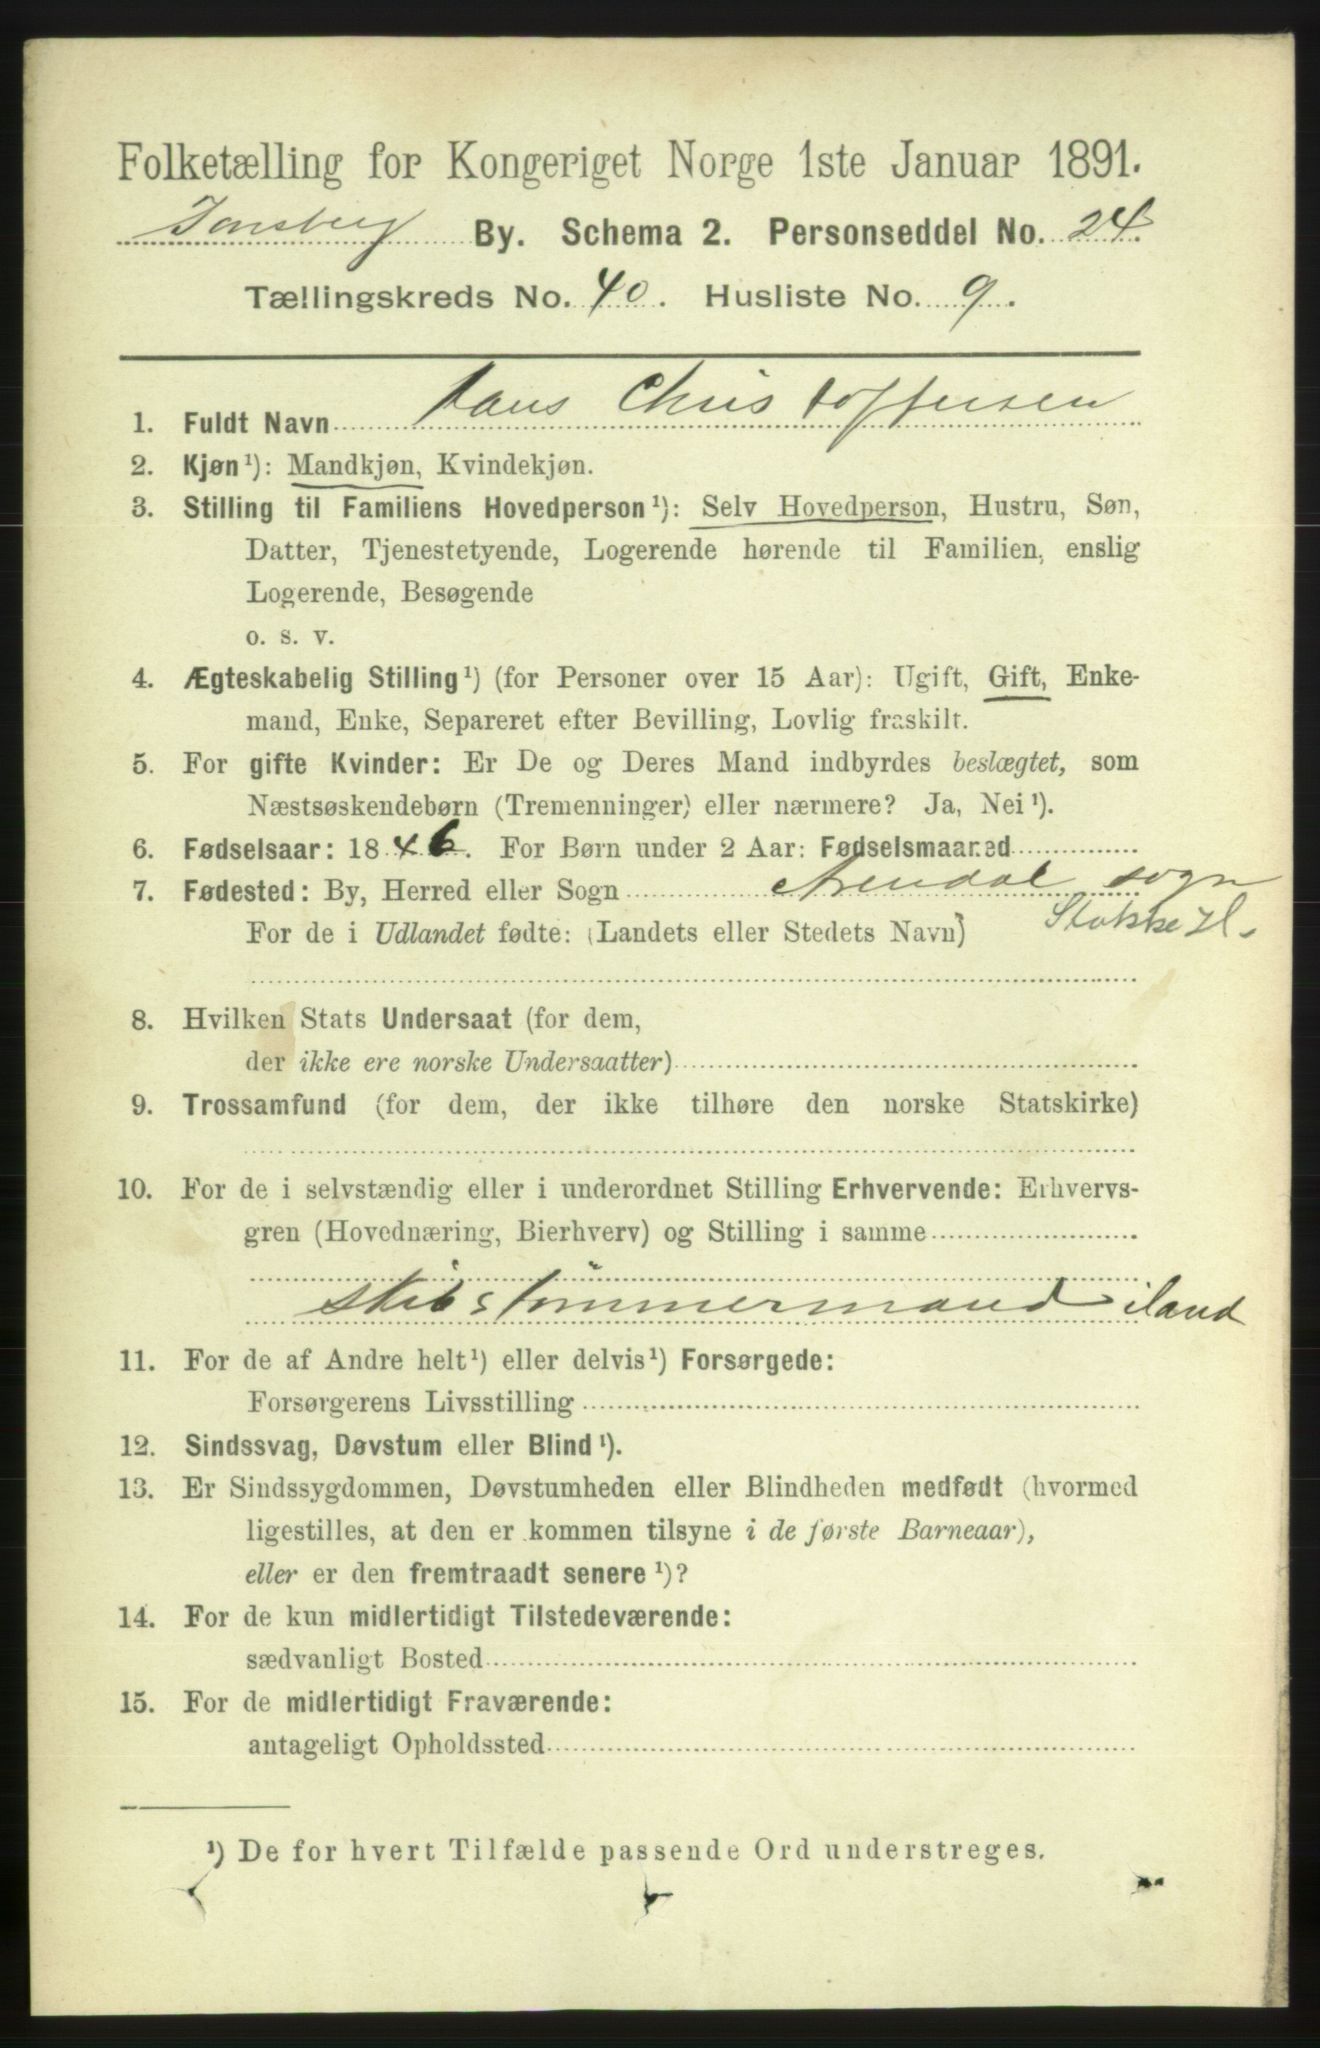 Folketælling for Kongeriget Norge 1ste Januar 1891.
Tønsberg By. Schema 2. Personseddel No. 24
Tællingskreds No. 40. Husliste No. 9.
1. Fuldt Navn Hans Christoffersen
2. Kjøn¹): Mandkjøn, Kvindekjøn.
3. Stilling til Familiens Hovedperson¹): Selv Hovedperson, Hustru, Søn,
Datter, Tjenestetyende, Logerende hørende til Familien, enslig
Logerende, Besøgende
o. s. v.
4. Ægteskabelig Stilling¹) (for Personer over 15 Aar): Ugift, Gift, Enke-
mand, Enke, Separeret efter Bevilling, Lovlig fraskilt.
5. For gifte Kvinder: Er De og Deres Mand indbyrdes beslægtet, som
Næstsøskendebørn (Tremenninger) eller nærmere? Ja, Nei¹).
6. Fødselsaar: 1846. For Børn under 2 Aar: Fødselsmaaned
7. Fødested: By, Herred eller Sogn Arendal sogn
For de i Udlandet fødte: (Landets eller Stedets Navn) Stokke H.
8. Hvilken Stats Undersaat (for dem,
der ikke ere norske Undersaatter)
9. Trossamfund (for dem, der ikke tilhøre den norske Statskirke)
10. For de i selvstændig eller i underordnet Stilling Erhvervende: Erhvervs-
gren (Hovednæring, Bierhverv) og Stilling i samme
skibstømmermand iland
11. For de af Andre helt¹) eller delvis¹) Forsørgede:
Forsørgerens Livsstilling
12. Sindssvag, Døvstum eller Blind¹).
13. Er Sindssygdommen, Døvstumheden eller Blindheden medfødt (hvormed
ligestilles, at den er kommen tilsyne i de første Barneaar),
eller er den fremtraadt senere¹)?
14. For de kun midlertidigt Tilstedeværende:
sædvanligt Bosted
15. For de midlertidigt Fraværende:
antageligt Opholdssted
¹) De for hvert Tilfælde passende Ord understreges.